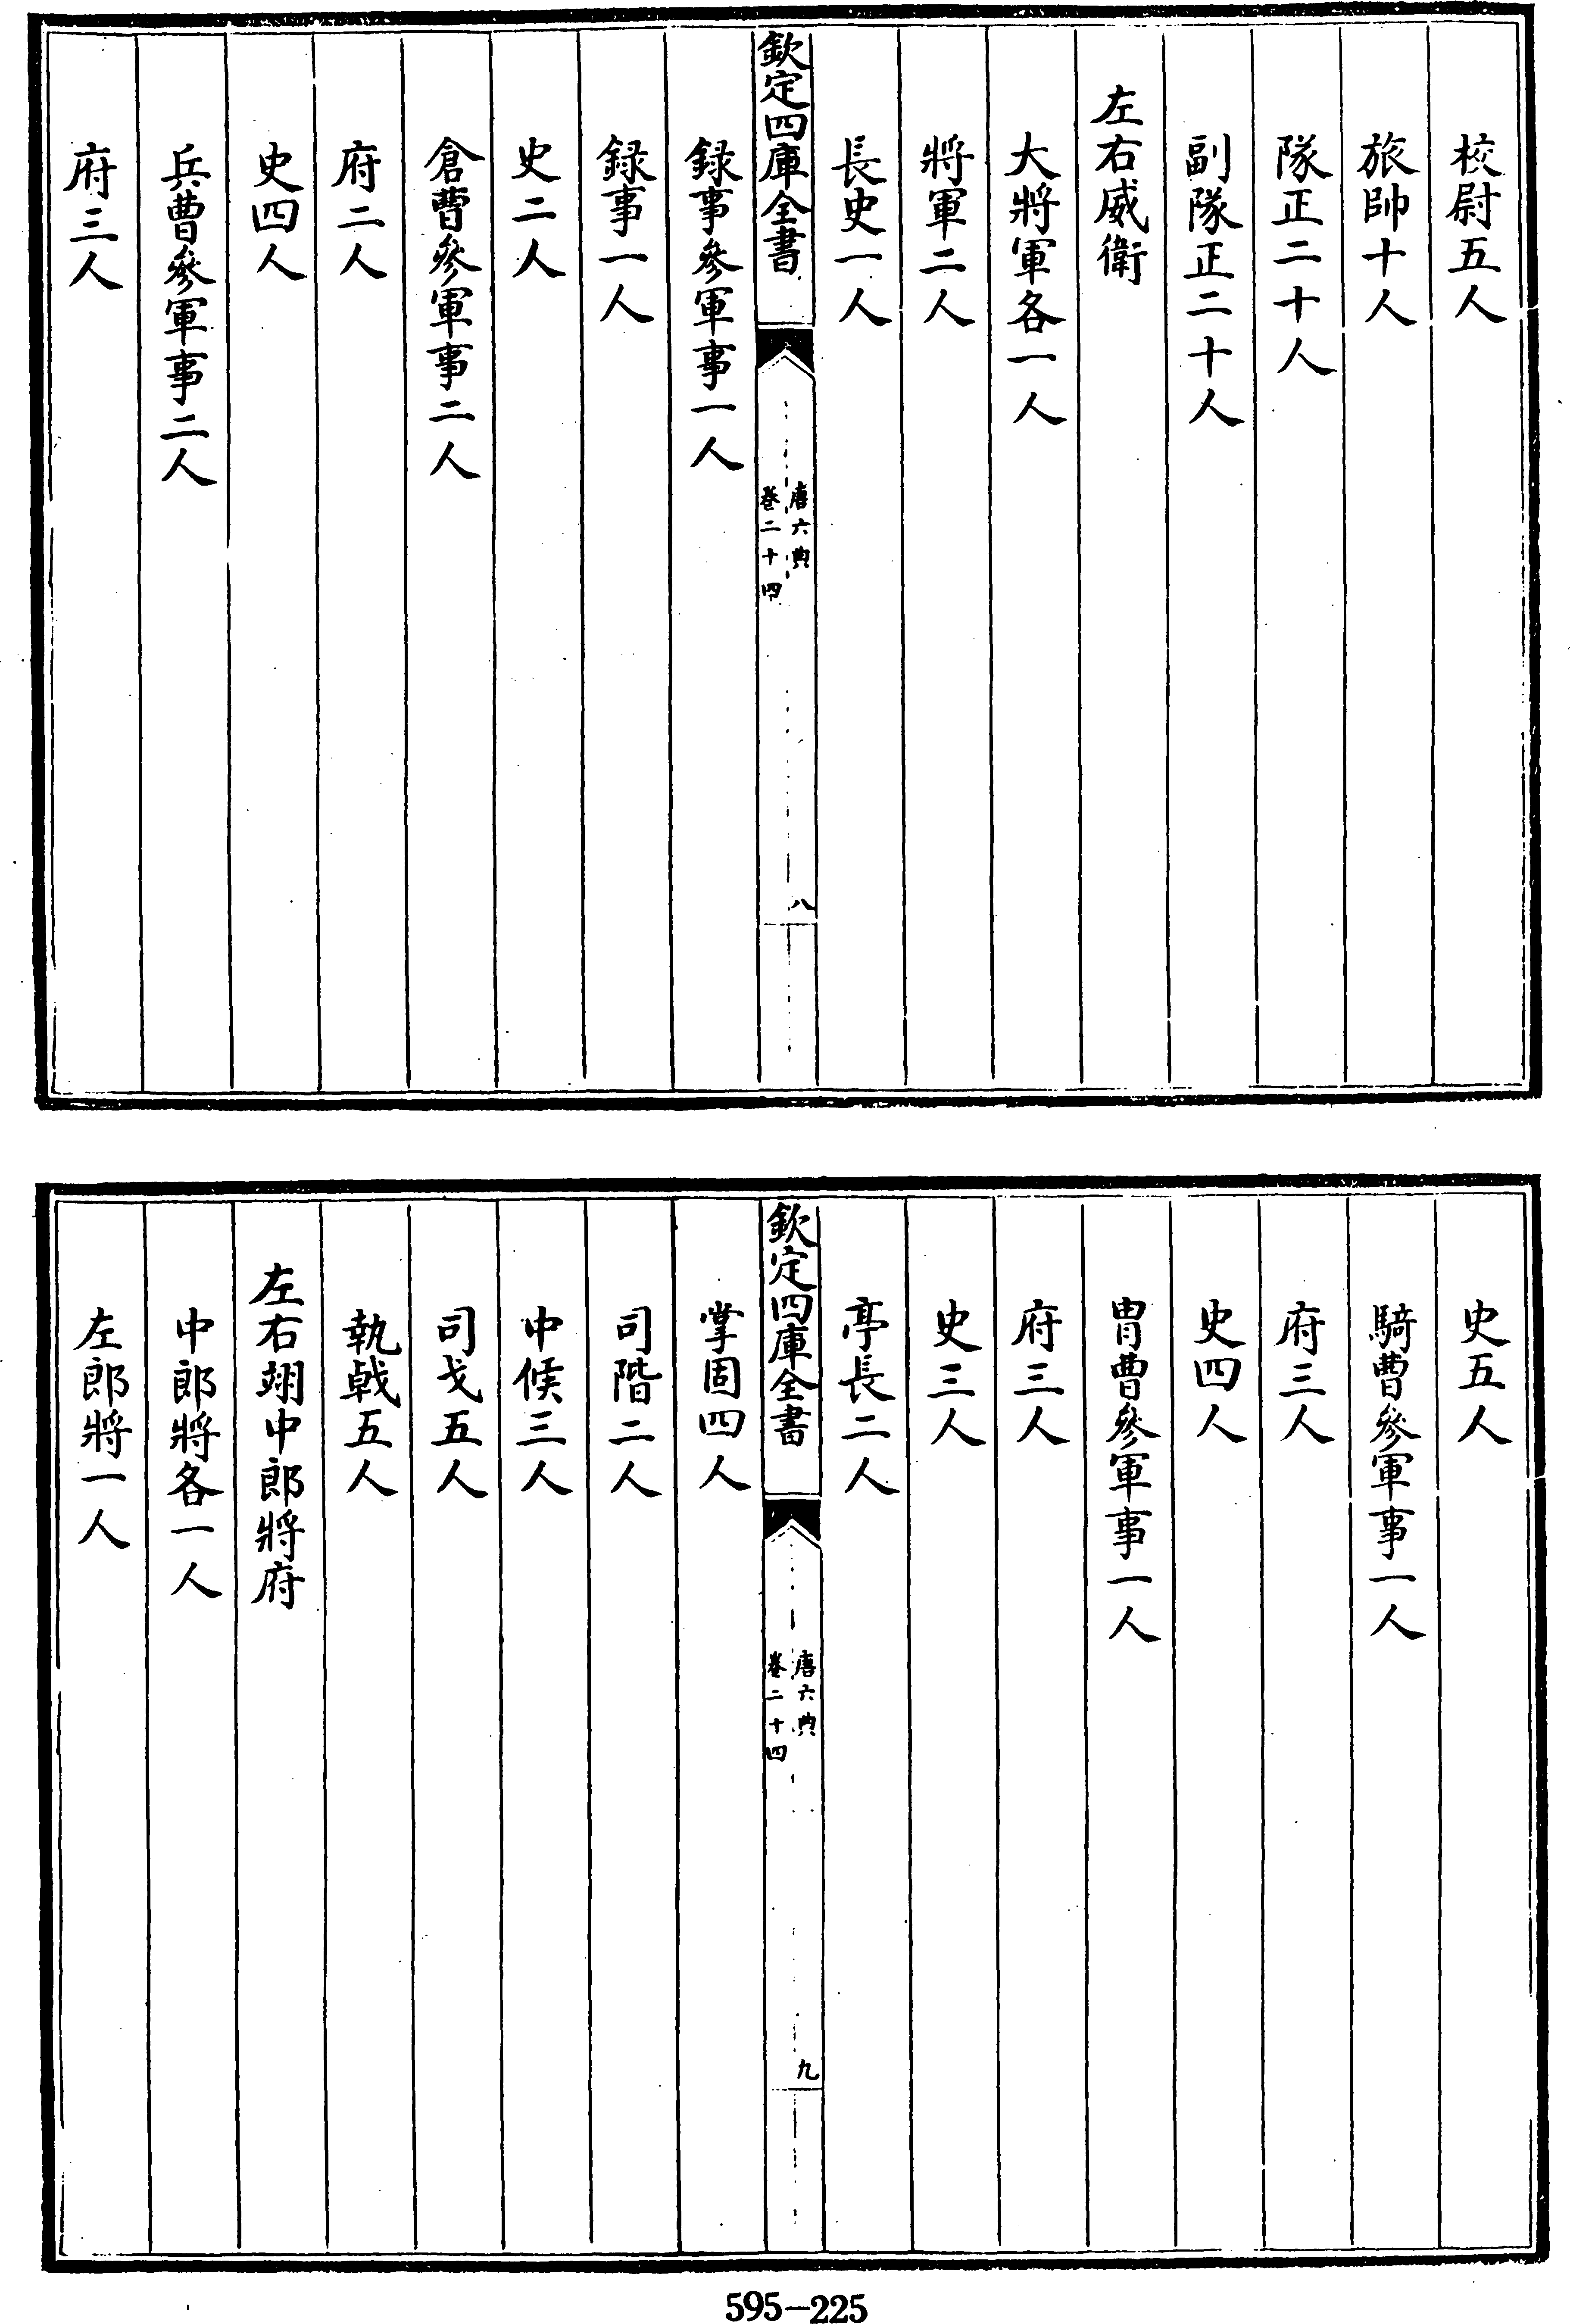 校尉五人
旅帥十人
隊正二十人
副隊正二十人
左右威衛
大將軍各一人
將軍二人
長史一人
欽定四庫全書
唐六典
卷二十四
八
録事參軍事一人
録事一人
史二人
倉曹參軍事二人
府二人
史四人
兵曹參軍事二人
府三人
史五人
騎曹參軍事一人
府三人
史四人
胄曹參軍事一人
府三人
史三人
亭長二人
欽定四庫全書
唐六典
卷二十四
九
掌固四人
司階二人
中候三人
司戈五人
執戟五人
左右翊中郎將府
中郎將各一人
左郎將一人
595-225